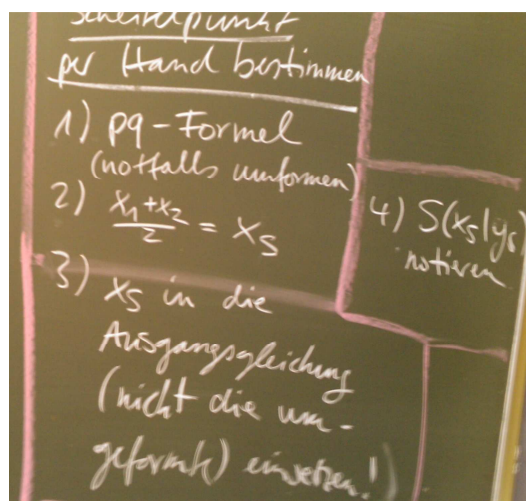 Scheitelpunkt
per Hand bestimmen
1) pq-Formel
(notfalls umformen)
2) x₁+x₂
2 = xₛ
3) xₛ in die
Ausgangsgleichung
(nicht die um-
geformte) einsetzen!)
4) S(xₛ|yₛ)
notieren